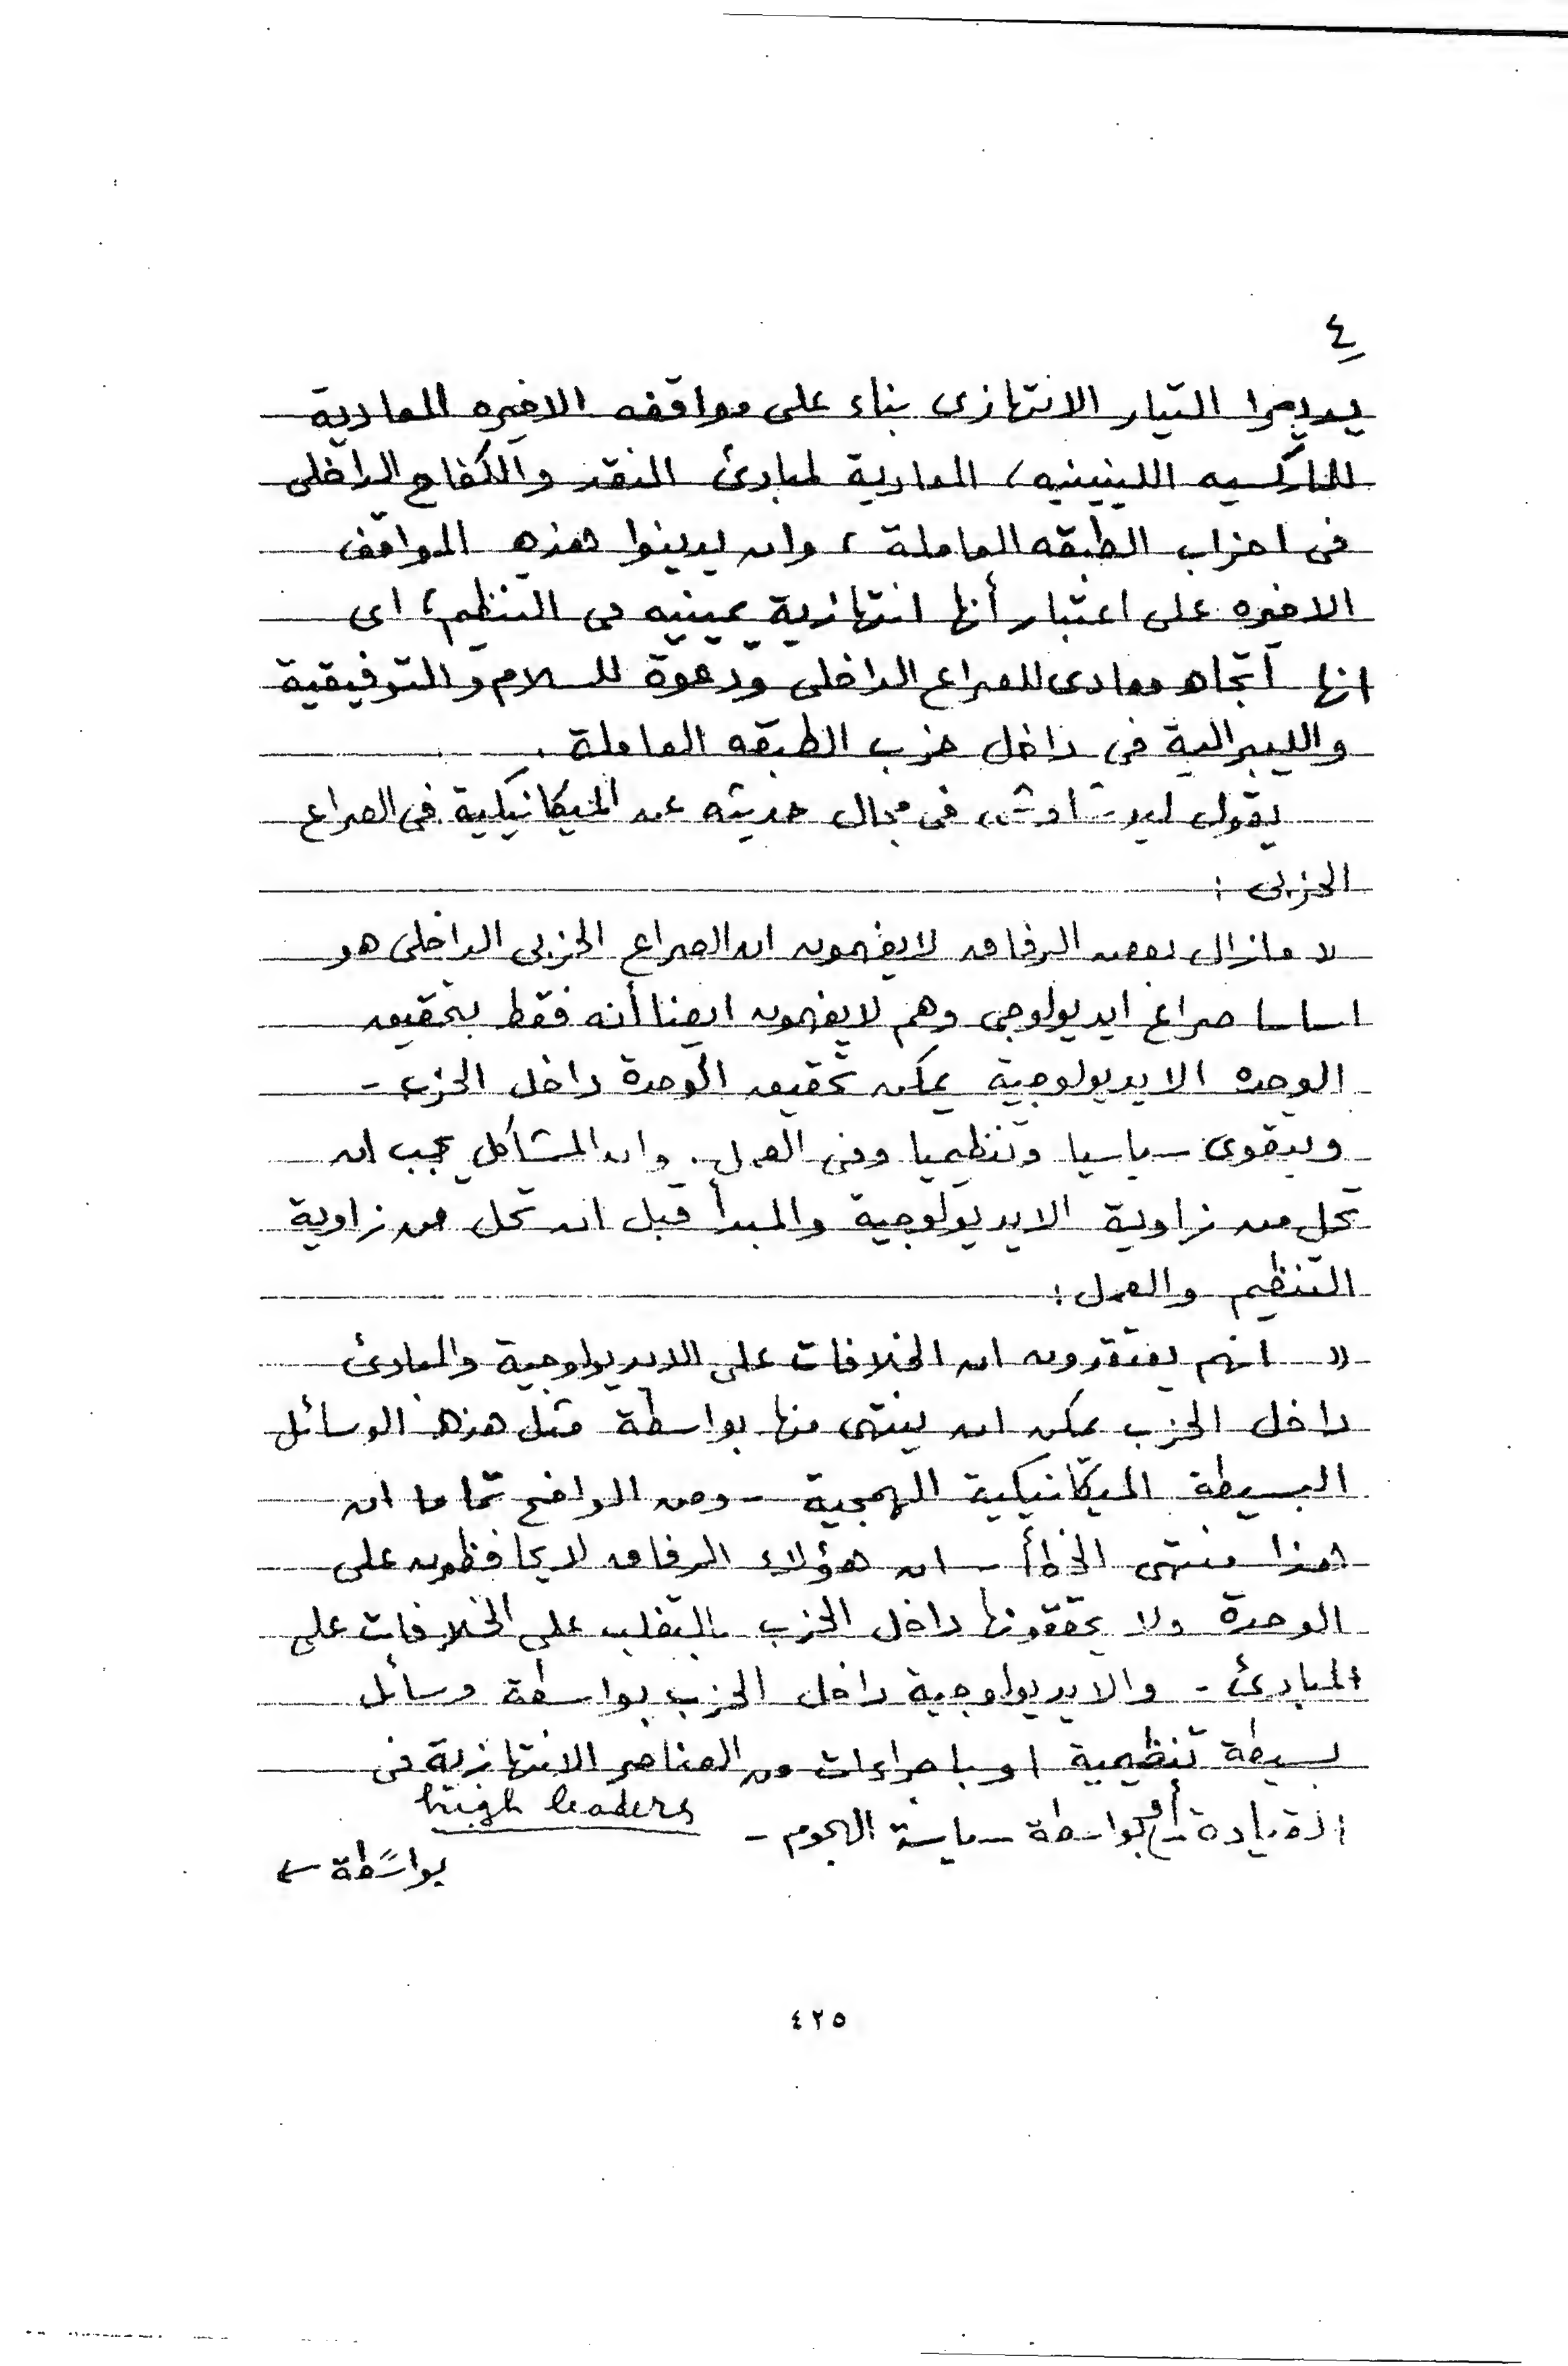 ٤
التيار الانتهازى بناء على مواقفه الاخيره المعادية
للماركسيه اللينينيه، المعادية لمبادئ النقد والكفاح الداخلى
فى احزاب الطبقه العاملة، وان يدينوا هذه المواقف
الاخيره على اعتبار أنها انتهازية يمينيه فى التنظيم، اى
انها اتجاه معادى للصراع الداخلى ودعوة للسلام والتوفيقية
والليبرالية فى داخل حزب الطبقه العاملة.
يقول ليوتشاوتشى فى مجال حديثه عن الميكانيكية فى الصراع
الحزبى :
لا مازال بعض الرفاق لا يفهمون ان الصراع الحزبى الداخلى هو
اساسا صراع ايديولوجى وهم لا يفهمون ايضا أنه فقط بتحقيق
الوحده الايديولوجية يمكن تحقيق الوحدة داخل الحزب -
ويتقوى سياسيا وتنظيميا وفى العمل. وان المشاكل يجب ان
تحل من زاوية الايديولوجية والمبدأ قبل ان تحل من زاوية
التنظيم والعمل :
« انهم يعتقدون ان الخلافات على الايديولوجية والمبادئ
داخل الحزب يمكن ان ينتهى منها بواسطة مثل هذه الوسائل
البسيطة الميكانيكية الهمجية - ومن الواضح تماما ان
هذا منتهى الخطأ - ان هؤلاء الرفاق لا يحافظون على
الوحدة ولا يحققونها داخل الحزب بالتغلب على الخلافات على
المبادئ - والايديولوجية داخل الحزب بواسطة وسائل
بسيطة تنظيمية او باجراءات من العناصر الانتهازية فى
high leaders
القيادة أو بواسطة سياسة الهجوم -
بواسطة ←
٤٢٥